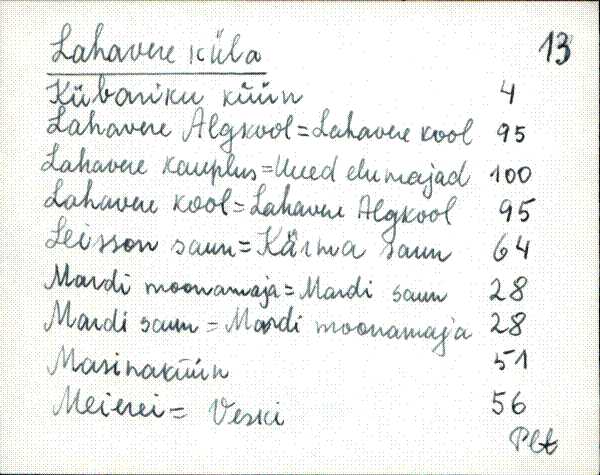 Lahavere küla 13
Kübariku küün 4
Lahavere Algkool = Lahavere kool 95
Lahavere kauplus = Uued elumajad 100
Lahavere kool = Lahavere Algkool 95
Leisson saun = Kärma saun 64
Mardi moonamaja = Mardi saun 28
Mardi saun = Mardi moonamaja 28
Masinaküün 51
Meierei = Veski 56